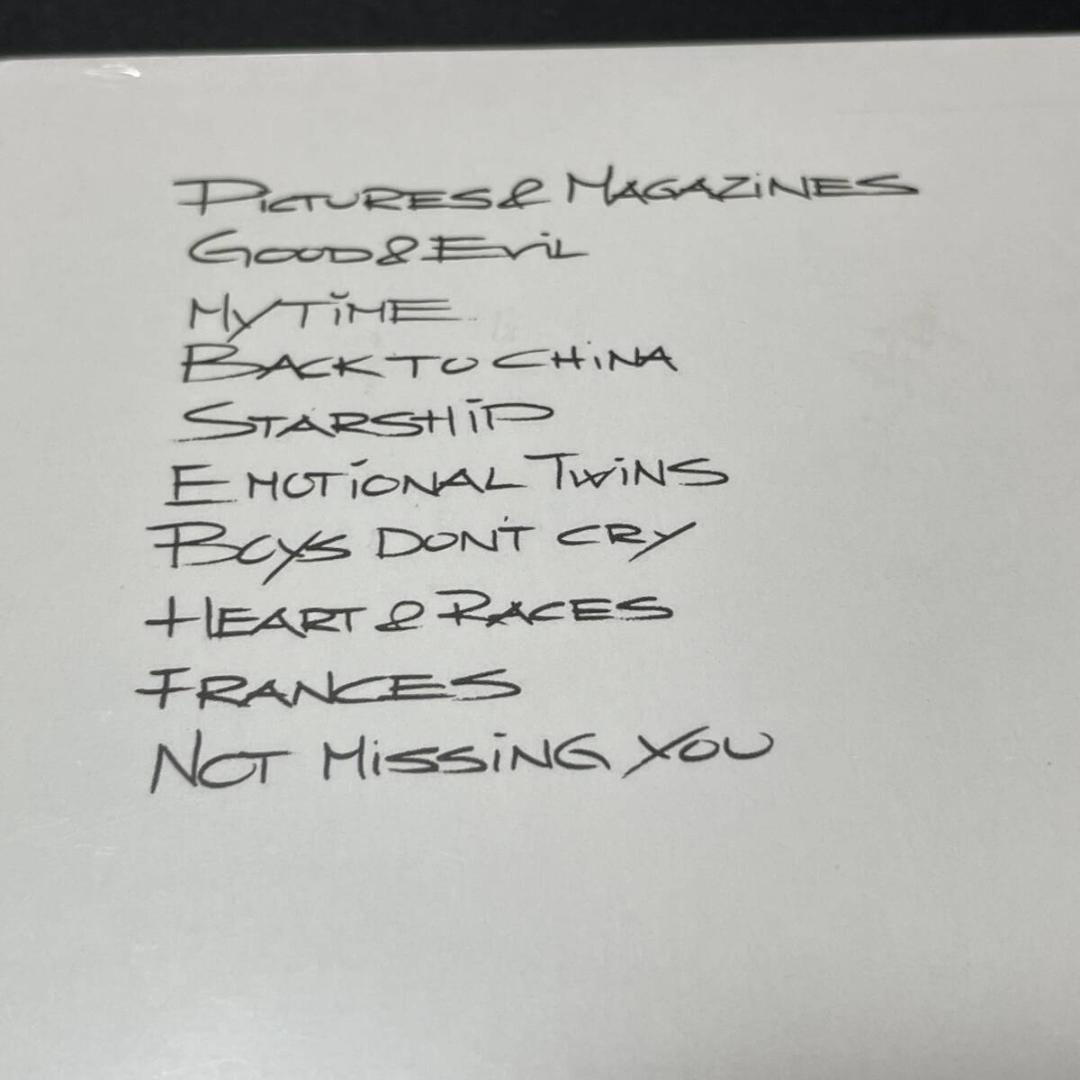 PICTURES & MAGAZINES
GOOD & EVIL
MY TIME
BACK TO CHINA
STARSHIP
EMOTIONAL TWINS
BOYS DON'T CRY
HEART & RACES
FRANCES
NOT MISSING YOU